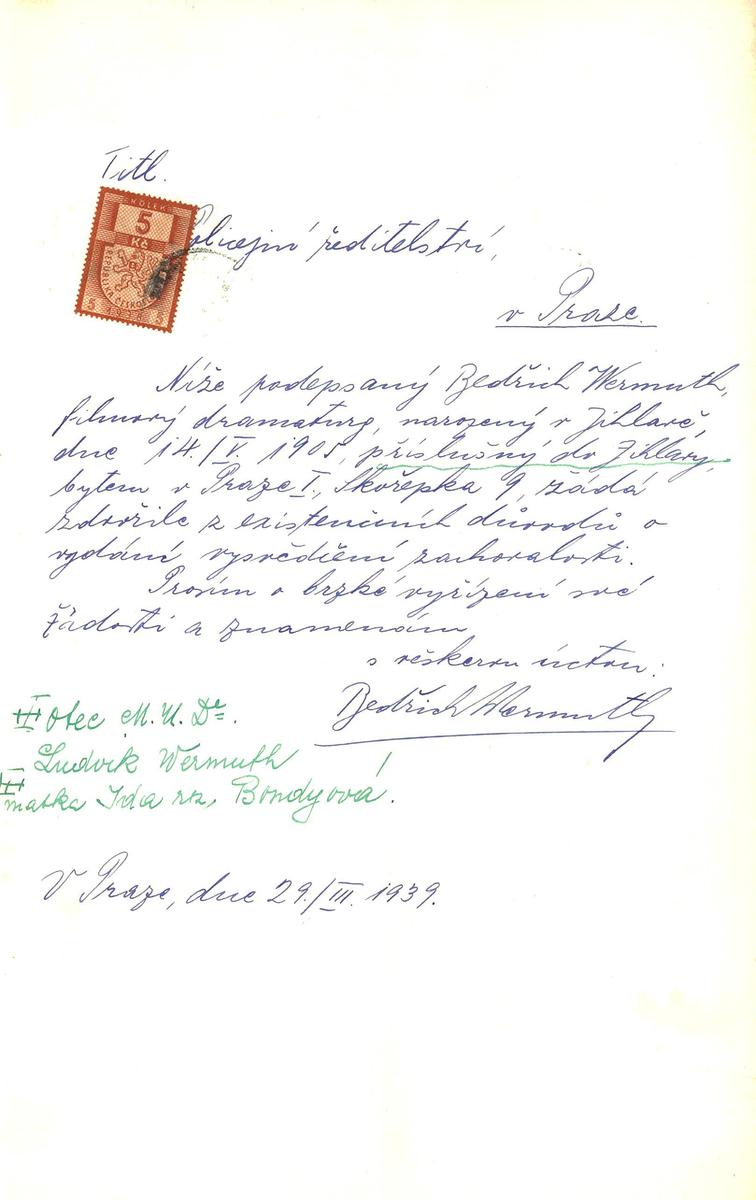 Titl.
KOLEK
5
Kč
REPUBLIKA ČESKO
5 5
Policejní ředitelství,
v Praze.
Níže podepsaný Bedřich Wermuth,
filmový dramaturg, narozený v Jihlavě,
dne 14./V. 1905, příslušný do Jihlavy,
bytem v Praze I., Skořepka 9, žádá
zdvořile z existenčních důvodů o
vydání vysvědčení zachovalosti.
Prosím o brzké vyřízení své
žádosti a znamenám
s veškerou úctou:
Bedřich Wermuth
otec M.U.Dr.
Ludvík Wermuth
matka Ida roz. Bondyová.
V Praze, dne 29./III. 1939.